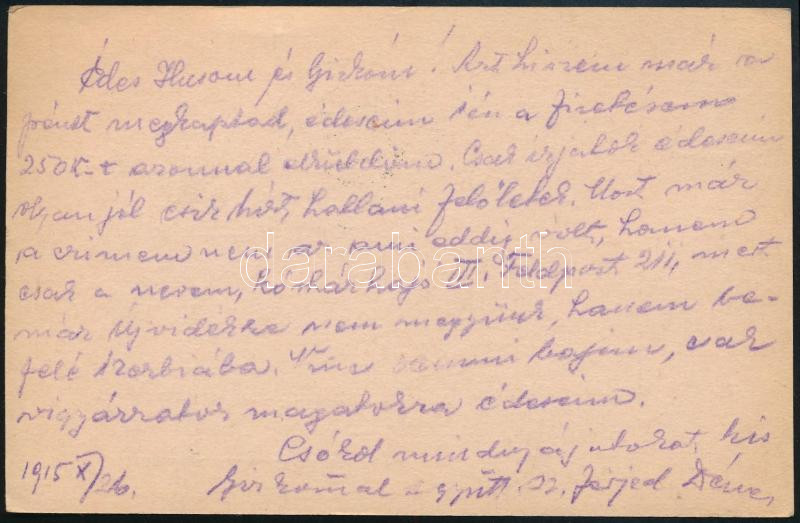 Édes Husom és Gizkóm! Azt hiszem már a
pénzt megkaptad, édeseim én a fizetésem
250K-t azonnal elküldöm. Csak írjatok édeseim
olyan jól esik hírt hallani felőletek. Most már
a címem nem az ami eddig volt, hanem
csak a nevem, kórházhajó III. Feldpost 211, mert
már Újvidékre nem megyünk, hanem be-
felé Szerbiába. Nincs semmi bajom, csak
vigyázzatok magatokra édeseim.
Csókol mindnyájatokat, kis
1915 X/26. Gizkómal együtt sz. férjed Dénes
darabanth